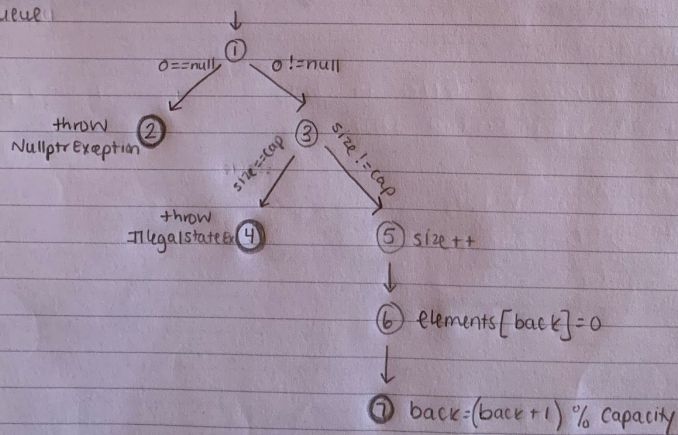 ueue
1
o==null
o!=null
throw
NullptrException
2
3
size==cap
size!=cap
throw
IllegalStateEx
4
5 size++
6 elements[back]=o
7 back=(back+1) % capacity